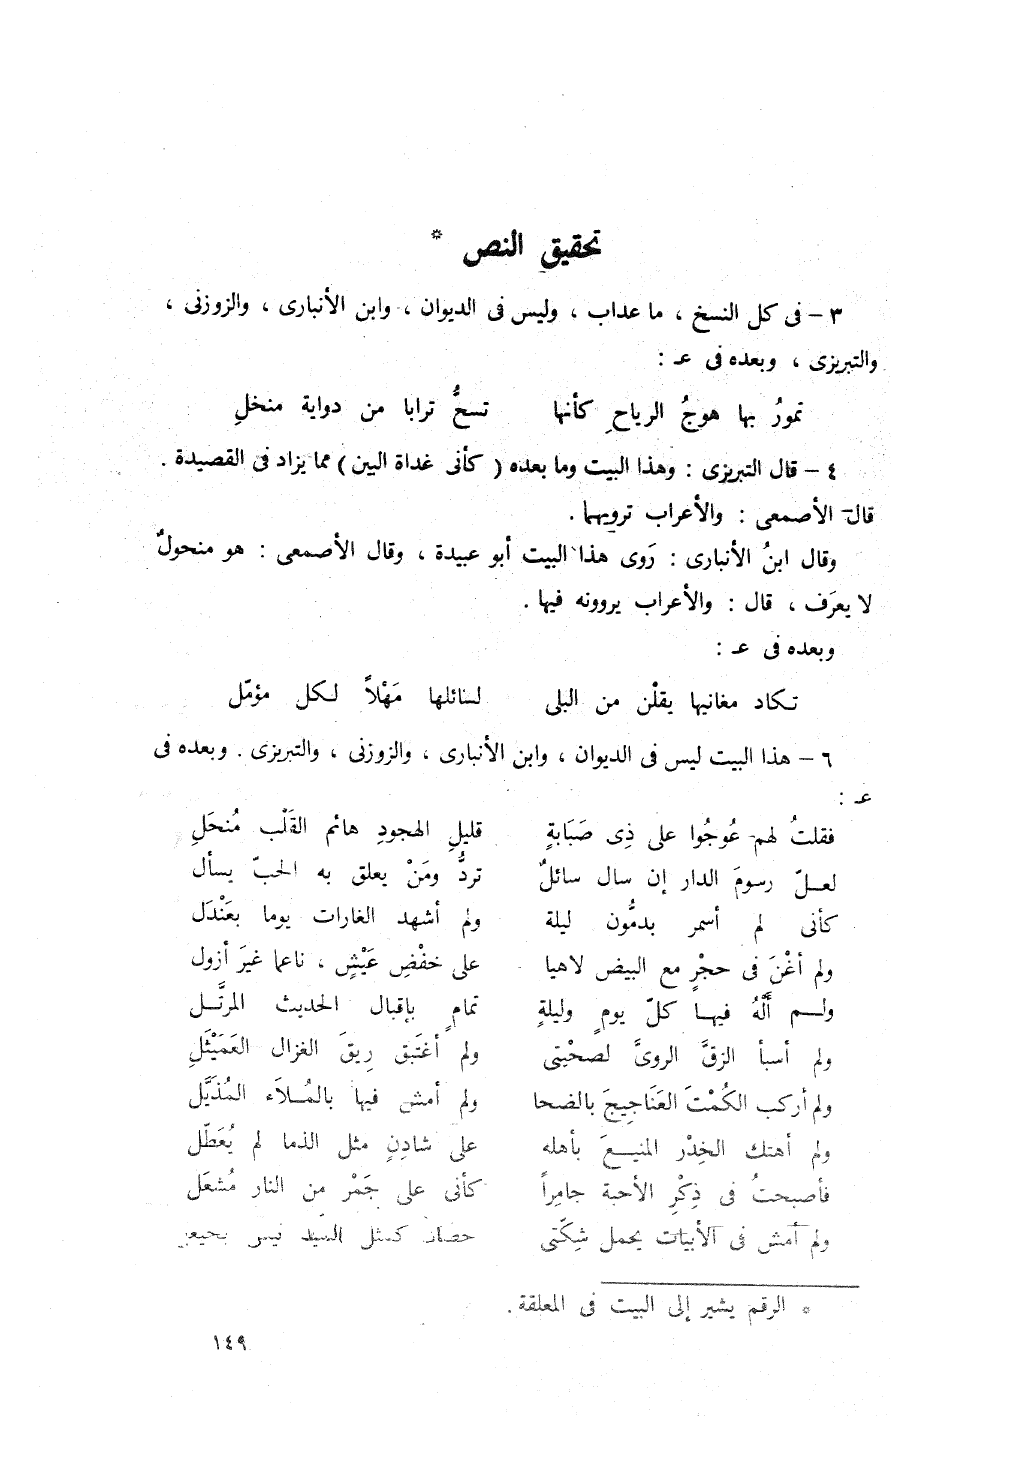 تحقيق النص *
٣ – فى كل النسخ ، ما عداب ، وليس فى الديوان ، وابن الأنبارى ، والزوزنى ،
والتبريزى ، وبعده فى عـ :
تمورُ بها هوجُ الرياحِ كأنها تسحُّ ترابا من دواية منخلِ
٤ – قال التبريزى : وهذا البيت وما بعده ( كأنى غداة البين ) مما يزاد فى القصيدة .
قال الأصمعى : والأعراب ترويهما .
وقال ابنُ الأنبارى : رَوى هذا البيت أبو عبيدة ، وقال الأصمعى : هو منحولٌ
لا يعرَف ، قال : والأعراب يروونه فيها .
وبعده فى عـ :
تكاد مغانيها يقلْن من البلى لسائلها مَهْلاً لكل مؤمّل
٦ – هذا البيت ليس فى الديوان ، وابن الأنبارى ، والزوزنى ، والتبريزى . وبعده فى
عـ :
فقلتُ لهم عُوجُوا على ذِى صَبَابةٍ قليلِ الهجودِ هائم القَلْب مُنحَلِ
لعـلّ رسومَ الدار إن سال سائلٌ تردُّ ومَنْ يعلق به الحبّ يسأل
كأنى لم أسمر بدمُّون ليلة ولم أشهد الغارات يوما بعَنْدَل
ولم أغْنَ فى حجْرٍ مع البيض لاهيا على خفْضِ عَيْشٍ ، ناعما غيرَ أزول
ولـم أَلْهُ فيهـا كلّ يومٍ وليلةٍ تمامٍ بإقبال الحديث المرتَّـل
ولم أسبأ الزقَّ الروىَّ لصحْبتى ولم أغتَبق رِيقَ الغزال العَمَيْثَلِ
ولم أركب الكُمْتَ العَنَاجِيجَ بالضحا ولم أمش فيها بالمُـلاَء المُذَيَّل
ولم أهتك الخِدْر المنيـعَ بأهله على شادِنٍ مثل الذما لم يُعَطّل
فأصبحتُ فى ذِكْرِ الأحبة جامِراً كأنى على جَمْر من النار مُشعَل
ولم أمش فى الأبيات يحمل شِكّتى حصان كمثل السّيد ليس
* الرقم يشير إلى البيت فى المعلقة .
١٤٩